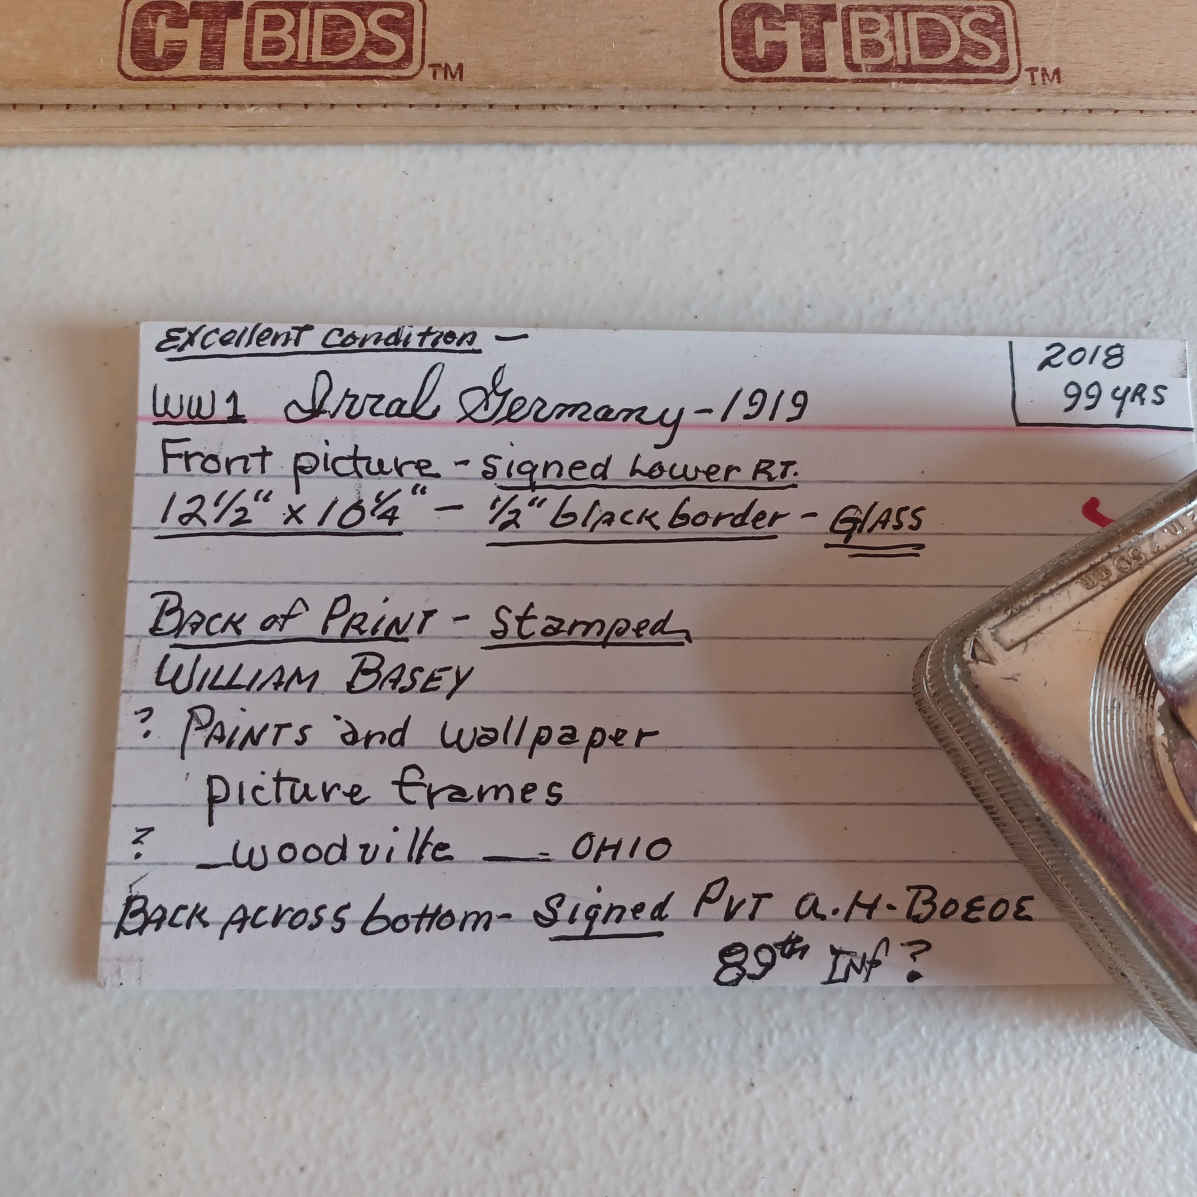 CT BIDS TM CT BIDS TM
Excellent Condition -
2018
99 YRS
WW1 Irral Germany - 1919
Front picture - Signed Lower RT.
12 1/2" x 10 1/4" - 1/2" black border - GLASS
BACK of PRINT - Stamped
WILLIAM BASEY
? PAINTS and wallpaper
picture frames
? - Woodville - OHIO
BACK ACROSS bottom - Signed PVT A.H. BOEOE
89th INF ?